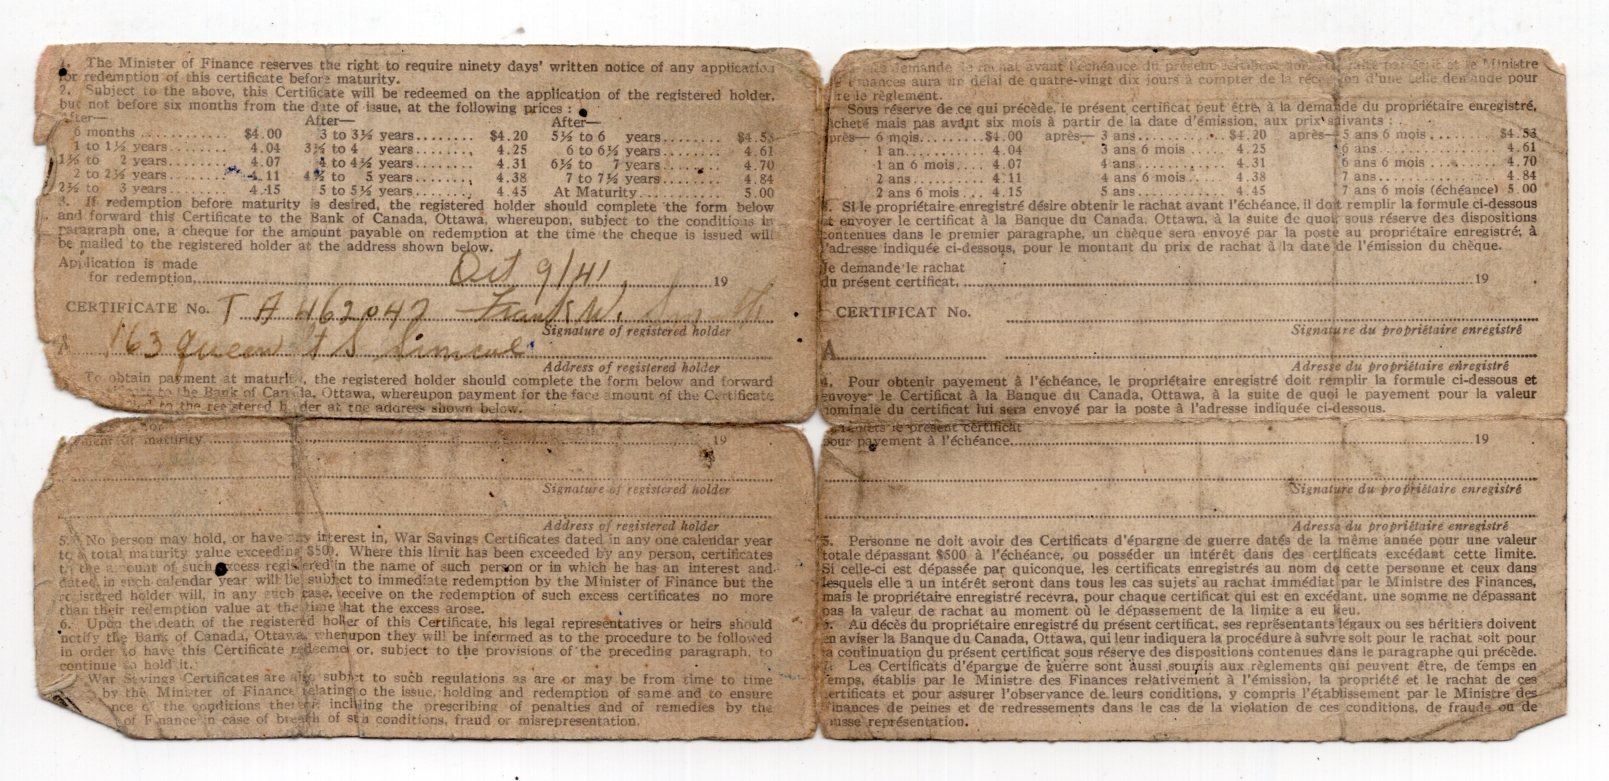 1. The Minister of Finance reserves the right to require ninety days' written notice of any application
for redemption of this certificate before maturity.
2. Subject to the above, this Certificate will be redeemed on the application of the registered holder,
but not before six months from the date of issue, at the following prices :
After— After— After—
6 months ............ $4.00 3 to 3½ years........ $4.20 5½ to 6 years........ $4.53
1 to 1½ years........ 4.04 3½ to 4 years........ 4.25 6 to 6½ years........ 4.61
1½ to 2 years........ 4.07 4 to 4½ years........ 4.31 6½ to 7 years........ 4.70
2 to 2½ years........ 4.11 4½ to 5 years........ 4.38 7 to 7½ years........ 4.84
2½ to 3 years........ 4.15 5 to 5½ years........ 4.45 At Maturity........ 5.00
3. If redemption before maturity is desired, the registered holder should complete the form below
and forward this Certificate to the Bank of Canada, Ottawa, whereupon, subject to the conditions in
paragraph one, a cheque for the amount payable on redemption at the time the cheque is issued will
be mailed to the registered holder at the address shown below.
Application is made
for redemption, Oct 9/41 19
CERTIFICATE No. T A 462047 Frank W. Smith
Signature of registered holder
A 163 Queen St S Simcoe
Address of registered holder
To obtain payment at maturity, the registered holder should complete the form below and forward
to the Bank of Canada, Ottawa, whereupon payment for the face amount of the Certificate
to the registered holder at the address shown below.
for
maturity 19
Signature of registered holder
Address of registered holder
5. No person may hold, or have any interest in, War Savings Certificates dated in any one calendar year
to a total maturity value exceeding $500. Where this limit has been exceeded by any person, certificates
to the amount of such excess registered in the name of such person or in which he has an interest and
dated in such calendar year will be subject to immediate redemption by the Minister of Finance but the
registered holder will, in any such case, receive on the redemption of such excess certificates no more
than their redemption value at the time that the excess arose.
6. Upon the death of the registered holder of this Certificate, his legal representatives or heirs should
notify the Bank of Canada, Ottawa, whereupon they will be informed as to the procedure to be followed
in order to have this Certificate redeemed or, subject to the provisions of the preceding paragraph, to
continue to hold it.
War Savings Certificates are also subject to such regulations as are or may be from time to time
by the Minister of Finance relating to the issue, holding and redemption of same and to ensure
of the conditions thereof including the prescribing of penalties and of remedies by the
of Finance in case of breach of such conditions, fraud or misrepresentation.
demande de rachat avant l'échéance du présent certificat le Ministre
des Finances aura un délai de quatre-vingt dix jours à compter de la réception d'une telle demande pour
le règlement.
Sous réserve de ce qui précède, le présent certificat peut être, à la demande du propriétaire enregistré,
racheté mais pas avant six mois à partir de la date d'émission, aux prix suivants :
après— 6 mois........ $4.00 après— 3 ans........ $4.20 après— 5 ans 6 mois........ $4.53
1 an........ 4.04 3 ans 6 mois........ 4.25 6 ans........ 4.61
1 an 6 mois........ 4.07 4 ans........ 4.31 6 ans 6 mois........ 4.70
2 ans........ 4.11 4 ans 6 mois........ 4.38 7 ans........ 4.84
2 ans 6 mois........ 4.15 5 ans........ 4.45 7 ans 6 mois (échéance) 5.00
3. Si le propriétaire enregistré désire obtenir le rachat avant l'échéance, il doit remplir la formule ci-dessous
et envoyer le certificat à la Banque du Canada, Ottawa, à la suite de quoi, sous réserve des dispositions
contenues dans le premier paragraphe, un chèque sera envoyé par la poste au propriétaire enregistré; à
l'adresse indiquée ci-dessous, pour le montant du prix de rachat à la date de l'émission du chèque.
Je demande le rachat
du présent certificat, 19
CERTIFICAT No.
Signature du propriétaire enregistré
A
Adresse du propriétaire enregistré
4. Pour obtenir payement à l'échéance, le propriétaire enregistré doit remplir la formule ci-dessous et
envoyer le Certificat à la Banque du Canada, Ottawa, à la suite de quoi le payement pour la valeur
nominale du certificat lui sera envoyé par la poste à l'adresse indiquée ci-dessous.
le présent certificat
pour payement à l'échéance 19
Signature du propriétaire enregistré
Adresse du propriétaire enregistré
5. Personne ne doit avoir des Certificats d'épargne de guerre datés de la même année pour une valeur
totale dépassant $500 à l'échéance, ou posséder un intérêt dans des certificats excédant cette limite.
Si celle-ci est dépassée par quiconque, les certificats enregistrés au nom de cette personne et ceux dans
lesquels elle a un intérêt seront dans tous les cas sujets au rachat immédiat par le Ministre des Finances,
mais le propriétaire enregistré recevra, pour chaque certificat qui est en excédant, une somme ne dépassant
pas la valeur de rachat au moment où le dépassement de la limite a eu lieu.
6. Au décès du propriétaire enregistré du présent certificat, ses représentants légaux ou ses héritiers doivent
en aviser la Banque du Canada, Ottawa, qui leur indiquera la procédure à suivre soit pour le rachat soit pour
la continuation du présent certificat sous réserve des dispositions contenues dans le paragraphe qui précède.
7. Les Certificats d'épargne de guerre sont aussi soumis aux règlements qui peuvent être, de temps en
temps, établis par le Ministre des Finances relativement à l'émission, la propriété et le rachat de ces
certificats et pour assurer l'observance de leurs conditions, y compris l'établissement par le Ministre des
Finances de peines et de redressements dans le cas de la violation de ces conditions, de fraude ou de
fausse représentation.